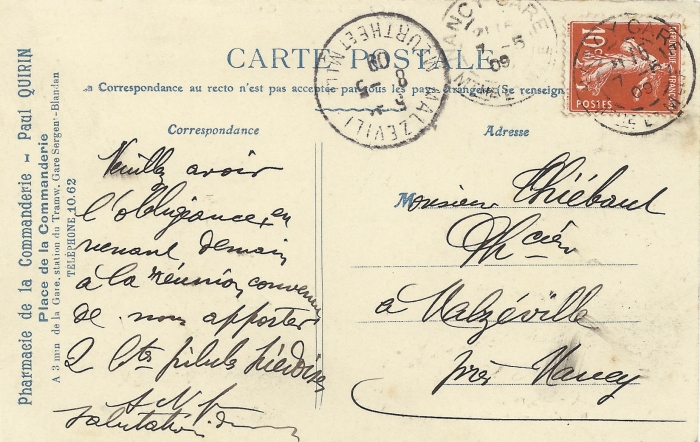 CARTE POSTALE
La Correspondance au recto n'est pas acceptée par tous les pays étrangers (Se renseign
Correspondance
Adresse
Pharmacie de la Commanderie - Paul QUIRIN
Place de la Commanderie
A 3 min de la Gare, station du Tramw. Gare Sergent-Blandan
TÉLÉPHONE 10.62
NANCY-GARE
7-5
09
MALZÉVILLE
8-5
09
MEURTHE ET M
10c
POSTES
Veuillez avoir
l'obligeance, en
venant demain
à la réunion convenue
de nous apporter
2 btes pilules
Salutations
Monsieur Thiébaut
Phcien
à Malzéville
près Nancy